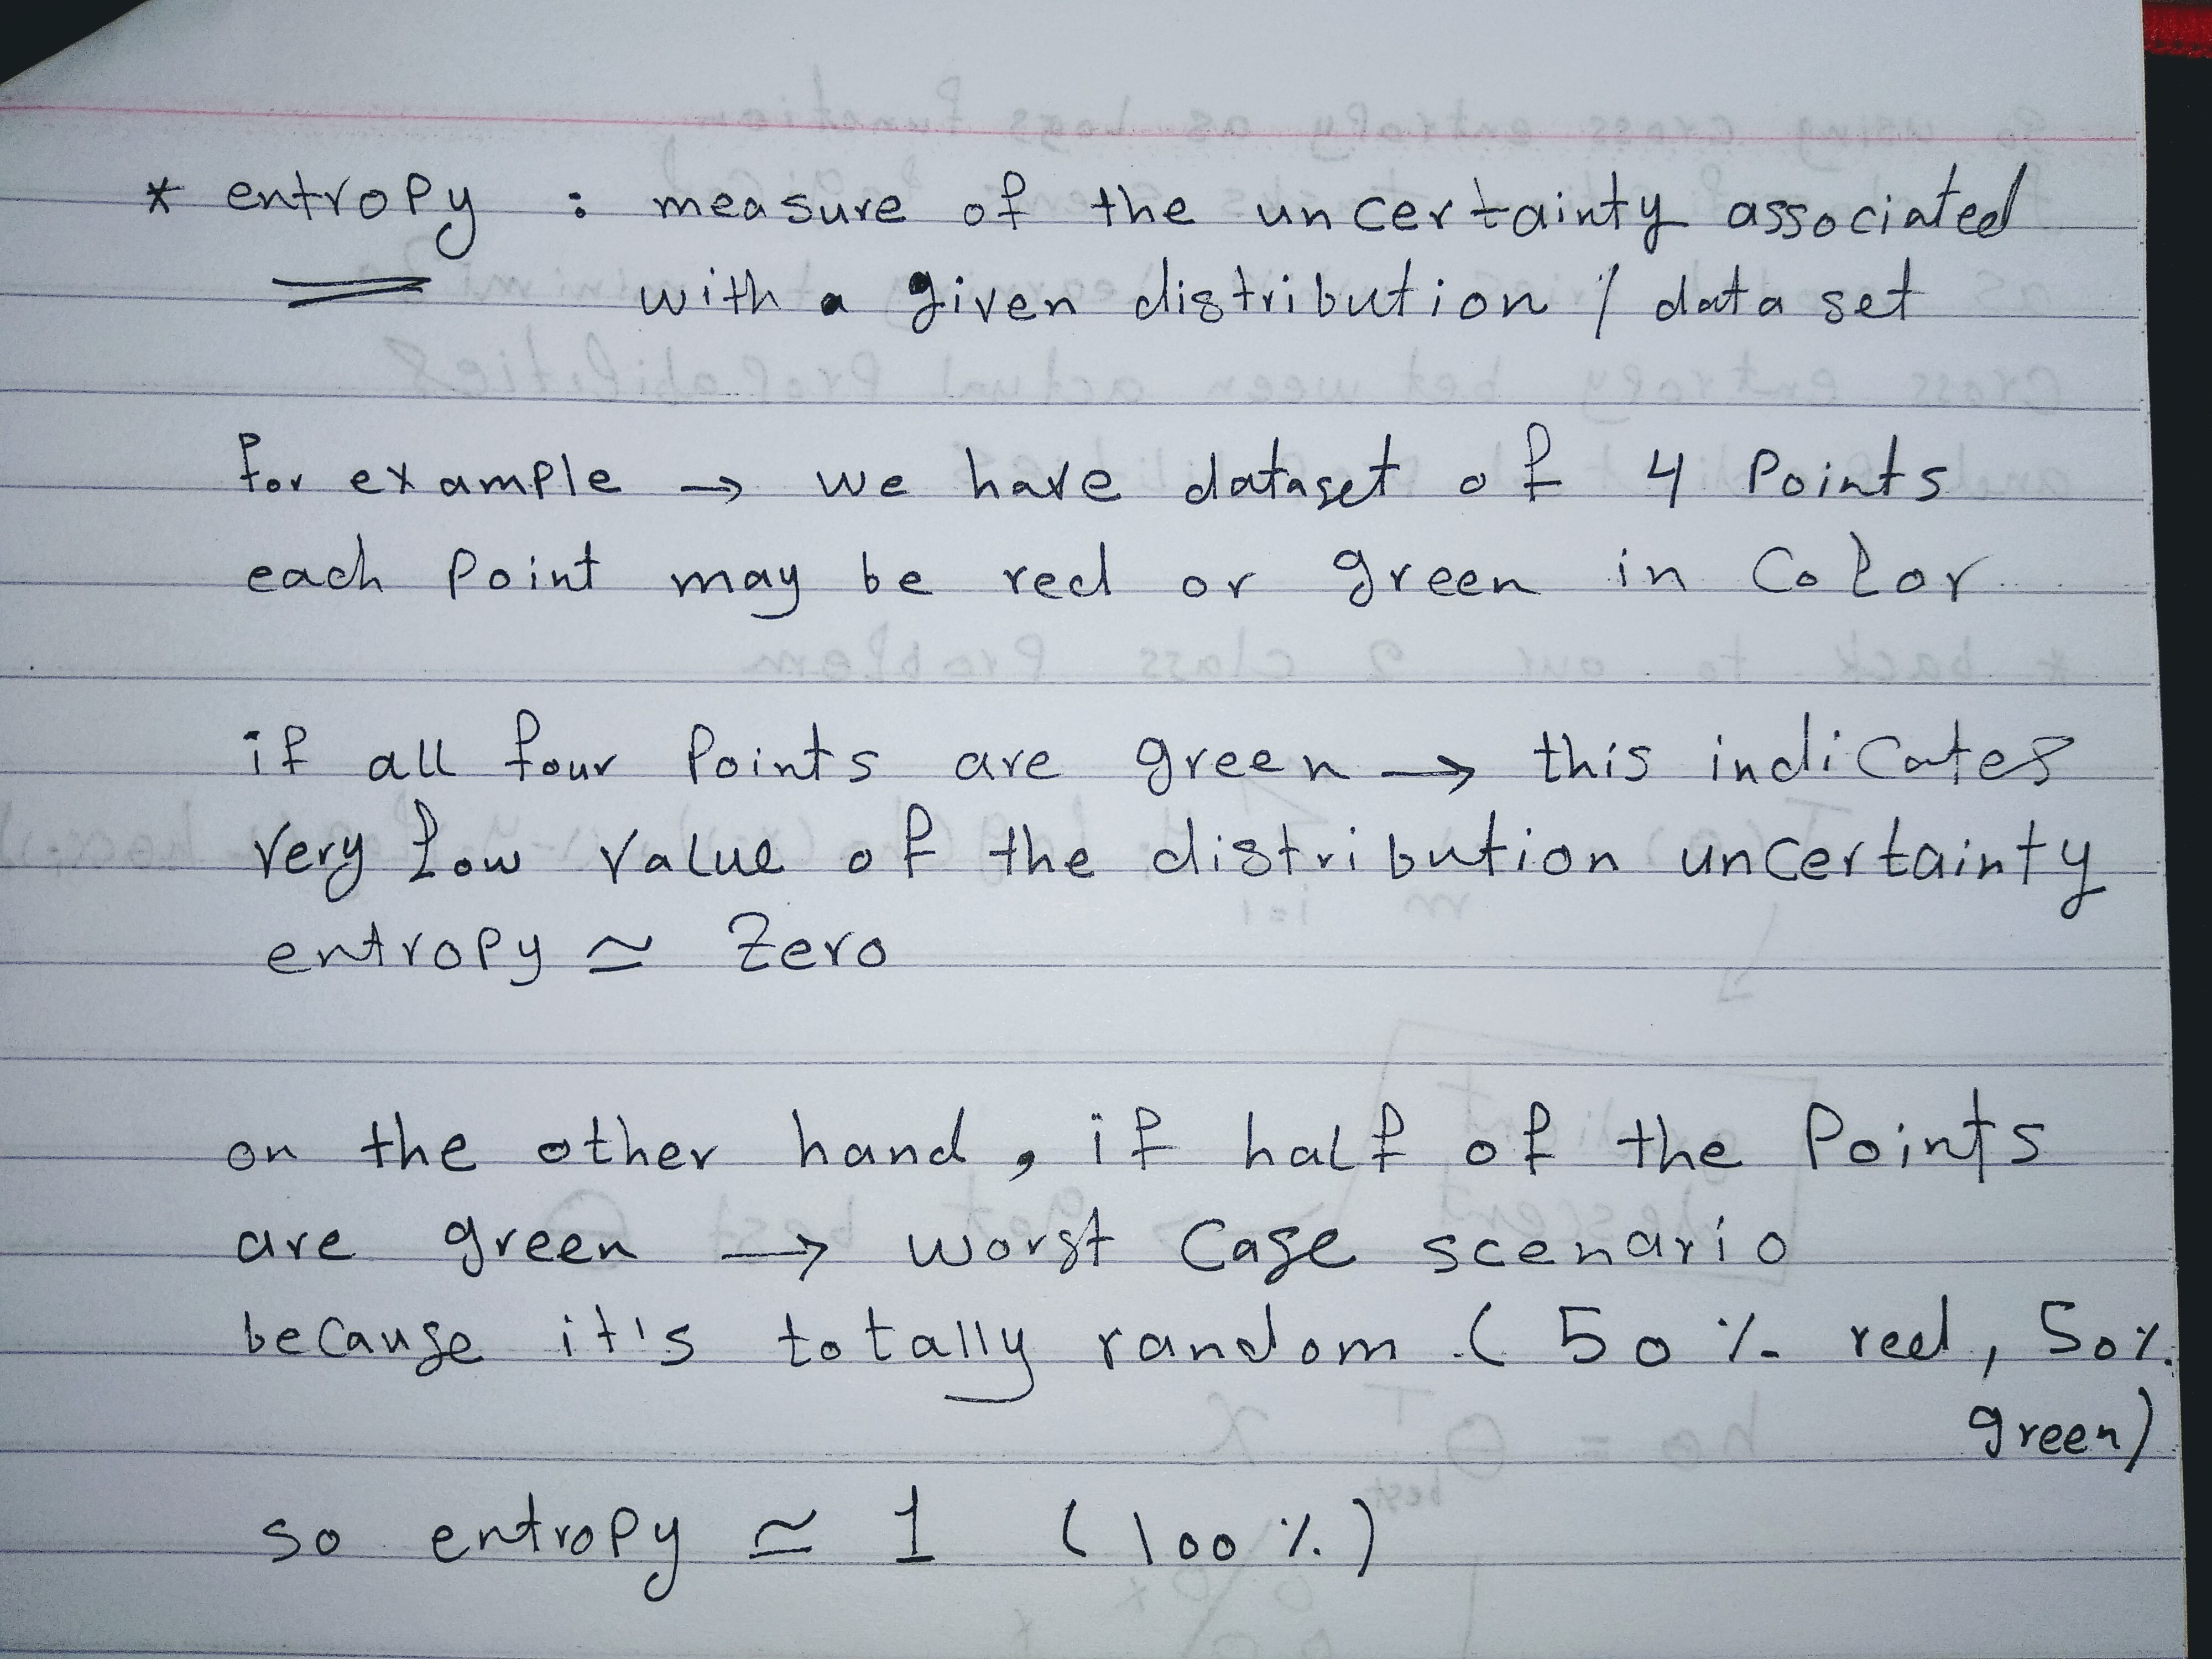 * entropy : measure of the uncertainty associated
with a given distribution / data set
for example → we have dataset of 4 points
each point may be red or green in color
if all four points are green → this indicates
very low value of the distribution uncertainty
entropy ≃ zero
on the other hand, if half of the points
are green → worst case scenario
because it's totally random (50% red, 50%
green)
so entropy ≃ 1 (100%)